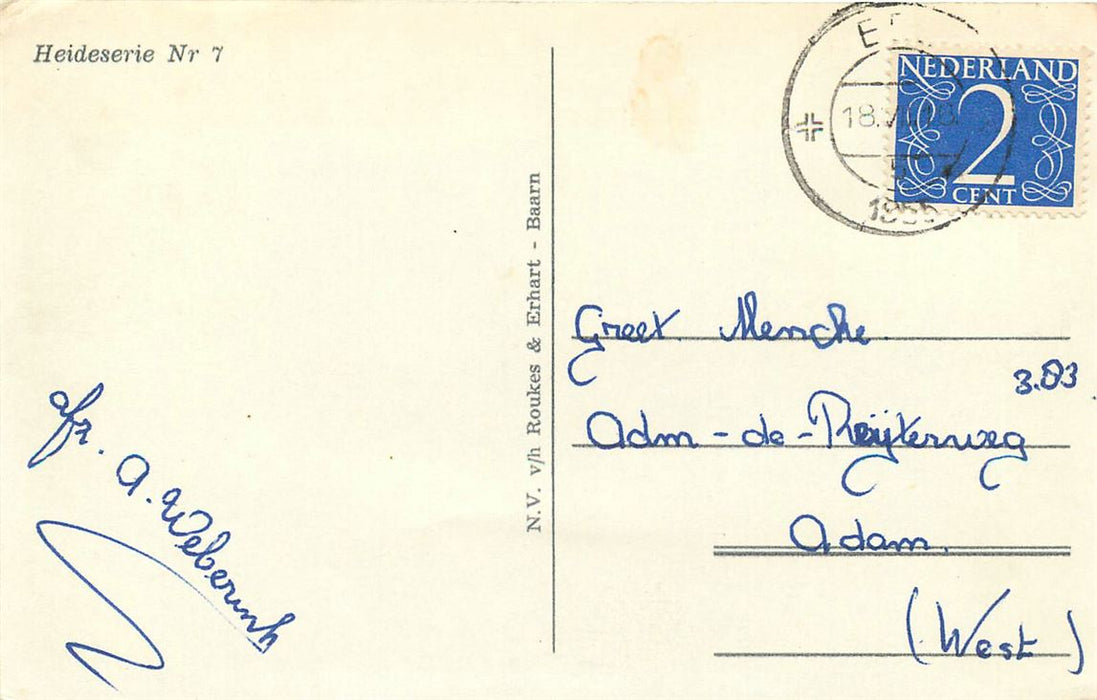 Heideserie Nr 7
N.V. v/h Roukes & Erhart - Baarn
NEDERLAND
2
CENT
1955
Greet. Mencke.
3.83
Adm-de-Ruijterweg
Adam.
(West)
afz. A. Weberink